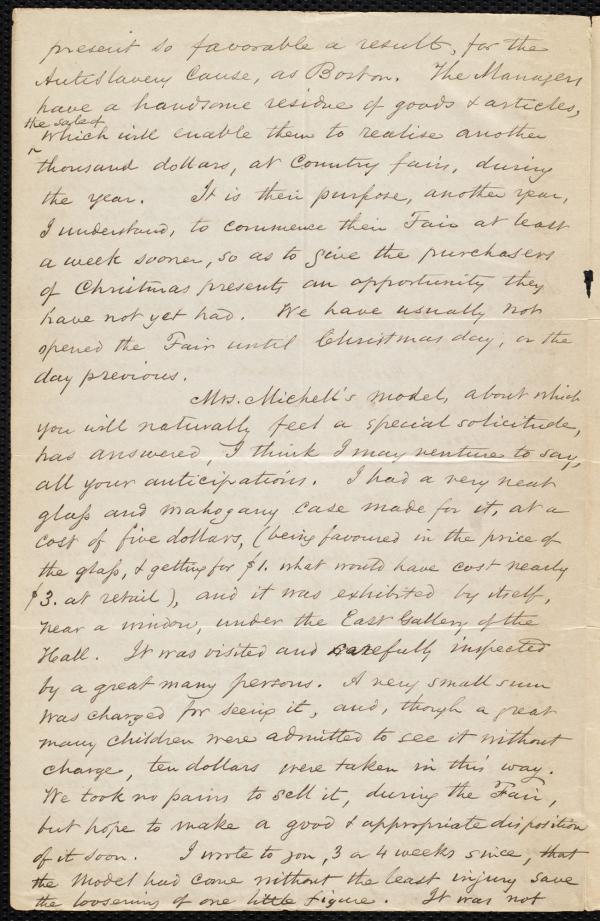 present so favorable a result, for the
Antislavery Cause, as Boston. The Managers
have a handsome residue of goods & articles,
the sale of
which will enable them to realise another
thousand dollars, at Country fairs, during
the year. It is their purpose, another year,
I understand, to commence their Fair at least
a week sooner, so as to give the purchasers
of Christmas presents an opportunity they
have not yet had. We have usually not
opened the Fair until Christmas day, or the
day previous.
Mrs. Michell's model, about which
you will naturally feel a special solicitude,
has answered, I think I may venture to say,
all your anticipations. I had a very neat
glass and mahogany case made for it, at a
cost of five dollars, (being favoured in the price of
the glass, & getting for $1. what would have cost nearly
$3. at retail), and it was exhibited by itself,
near a window, under the East Gallery of the
Hall. It was visited and carefully inspected
by a great many persons. A very small sum
was charged for seeing it, and, though a great
many children were admitted to see it without
charge, ten dollars were taken in this way.
We took no pains to sell it, during the Fair,
but hope to make a good & appropriate disposition
of it soon. I wrote to you, 3 or 4 weeks since, that
the Model had come without the least injury save
the loosening of one little figure. It was not